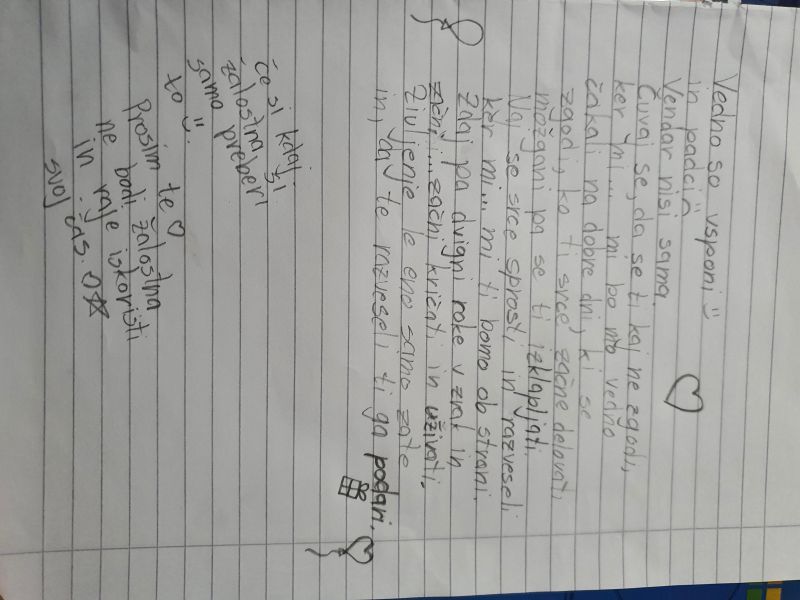 Vedno so vsponi
in padci
Vendar nisi sama.
Čuvaj se, da se ti kaj ne zgodi,
ker mi... mi bomo vedno
čakali na dobre dni, ki se
zgodi, ko ti srce začne delovati
možgani pa se ti izklapljati.
Naj se srce sprosti in razveseli
ker mi... mi ti bomo ob strani.
Zdaj pa dvigni roke v zrak in
začni... začni kričati in uživati.
Življenje je eno samo zate
in, da te razveseli ti ga podari.
če si kdaj
žalostna si
samo preberi
to
Prosim te
ne bodi žalostna
ne raje iskoristi
in
svoj čas.